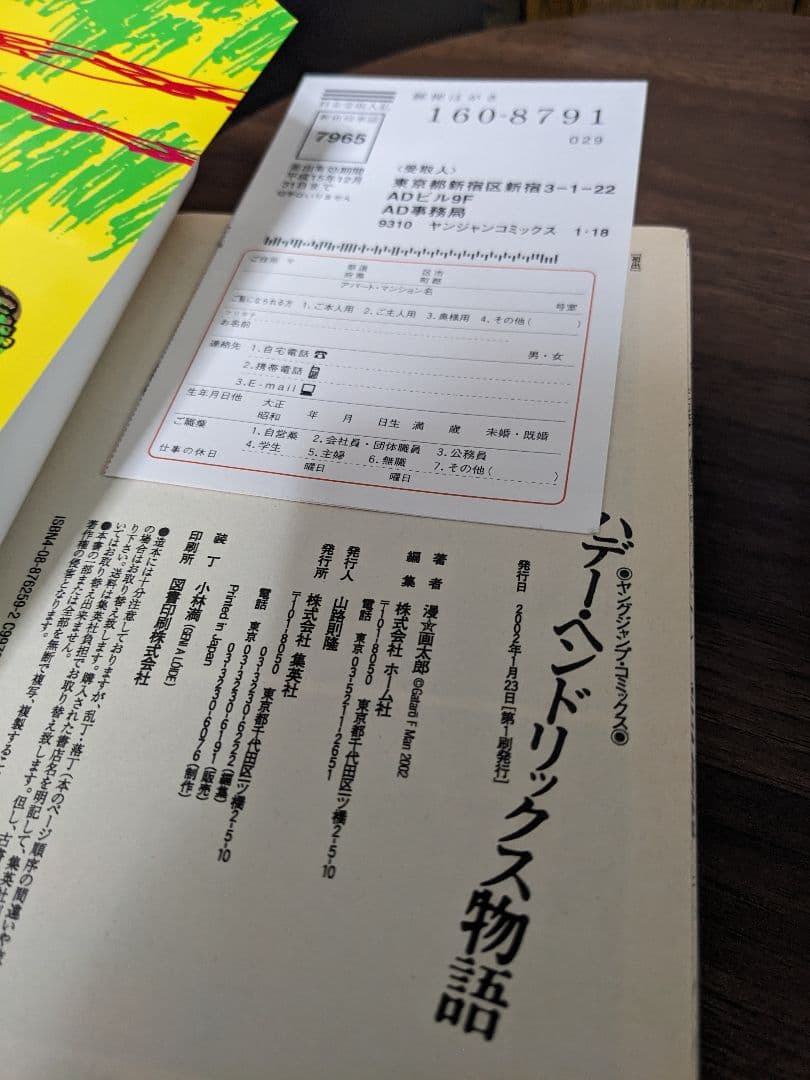 郵便はがき
160-8791
029
料金受取人払
新宿局承認
7965
差出有効期間
平成15年12月
31日まで
切手がいりません
〈受取人〉
東京都新宿区新宿3-1-22
ADビル9F
AD事務局
9310 ヤンジャンコミックス 1・18
ご住所 〒
都道 区市
府県 町郡
アパート・マンション名
号室
ご覧になられる方 1.ご本人用 2.ご主人用 3.奥様用 4.その他( )
フリガナ
お名前
男・女
連絡先 1.自宅電話
2.携帯電話
3.E-mail
生年月日他 大正
昭和 年 月 日生 満 歳 未婚・既婚
ご職業 1.自営業 2.会社員・団体職員 3.公務員
4.学生 5.主婦 6.無職 7.その他( )
仕事の休日 曜日 曜日
●ヤングジャンプ・コミックス●
ハデー・ヘンドリックス物語
発行日 2002年1月23日[第1刷発行]
著者 漫☆画太郎 ©Gatarō F Man 2002
編集 株式会社 ホーム社
〒101-8050 東京都千代田区一ツ橋2-5-10
電話 東京 03-5211-2651
発行人 山路則隆
発行所 株式会社 集英社
〒101-8050 東京都千代田区一ツ橋2-5-10
電話 東京 03-3230-6222(編集)
03-3230-6191(販売)
03-3230-6076(制作)
Printed in Japan
装丁 小林満(GEN A LÒGE)
印刷所 図書印刷株式会社
●造本には十分注意しておりますが、乱丁・落丁(本のページ順序の間違いや
の場合はお取り替え致します。購入された書店名を明記して、集英社
り下さい。送料は集英社負担でお取り替え致します。但し、古書
いてはお取り替え出来ません。
●本書の一部または全部を無断で複写、複製するこ
著作権の侵害となります。
ISBN4-08-876259-2 C997